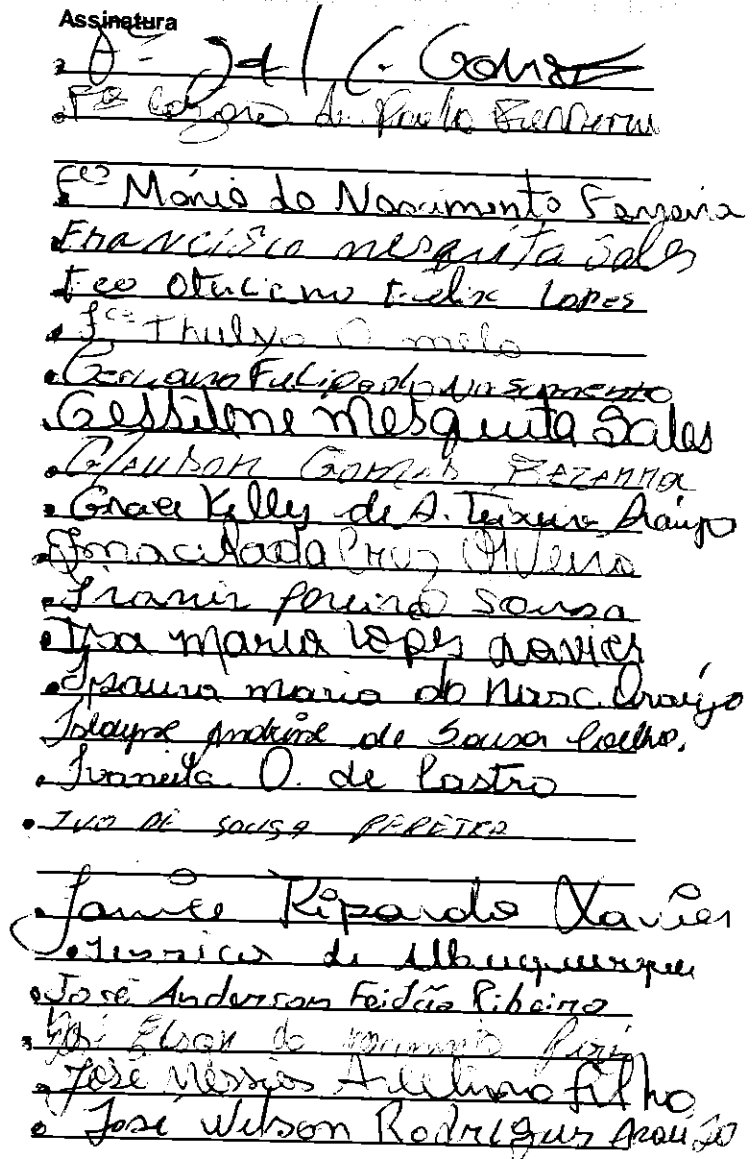 Assinatura
Fco de Paulo
Fco Mário do Nascimento Ferreira
Francisco mesquita Sales
Fco Felix Lopes
Fco Thulyo O melo
Germano Felipe do Nascimento
Gessilene mesquita Sales
Glauson Gomes Bezerra
Grace Kelly de A. Teixeira Araújo
Imaculada Cruz Oliveira
Iranir pereira Sousa
Isa maria Lopes xavier
Isaura maria do Nasc. Araújo
Andrine de Sousa Coelho.
Ivaneida O. de Castro
IVO DE SOUSA PEREIRA
Janice Ripardo Xavier
Jessica de Albuquerque
José Anderson Feijão Ribeiro
José Elson do
José Messias Avelino filho
José Wilson Rodrigues Araújo